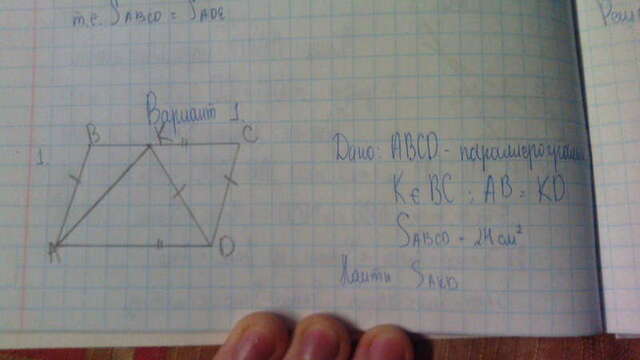 т.е. SABCD = SADE
Реш
Вариант 1.
1.
B K C
A D
Дано: ABCD - параллелограмм
K ∈ BC ; AB = KD
SABCD = 24 см²
Найти SAKD